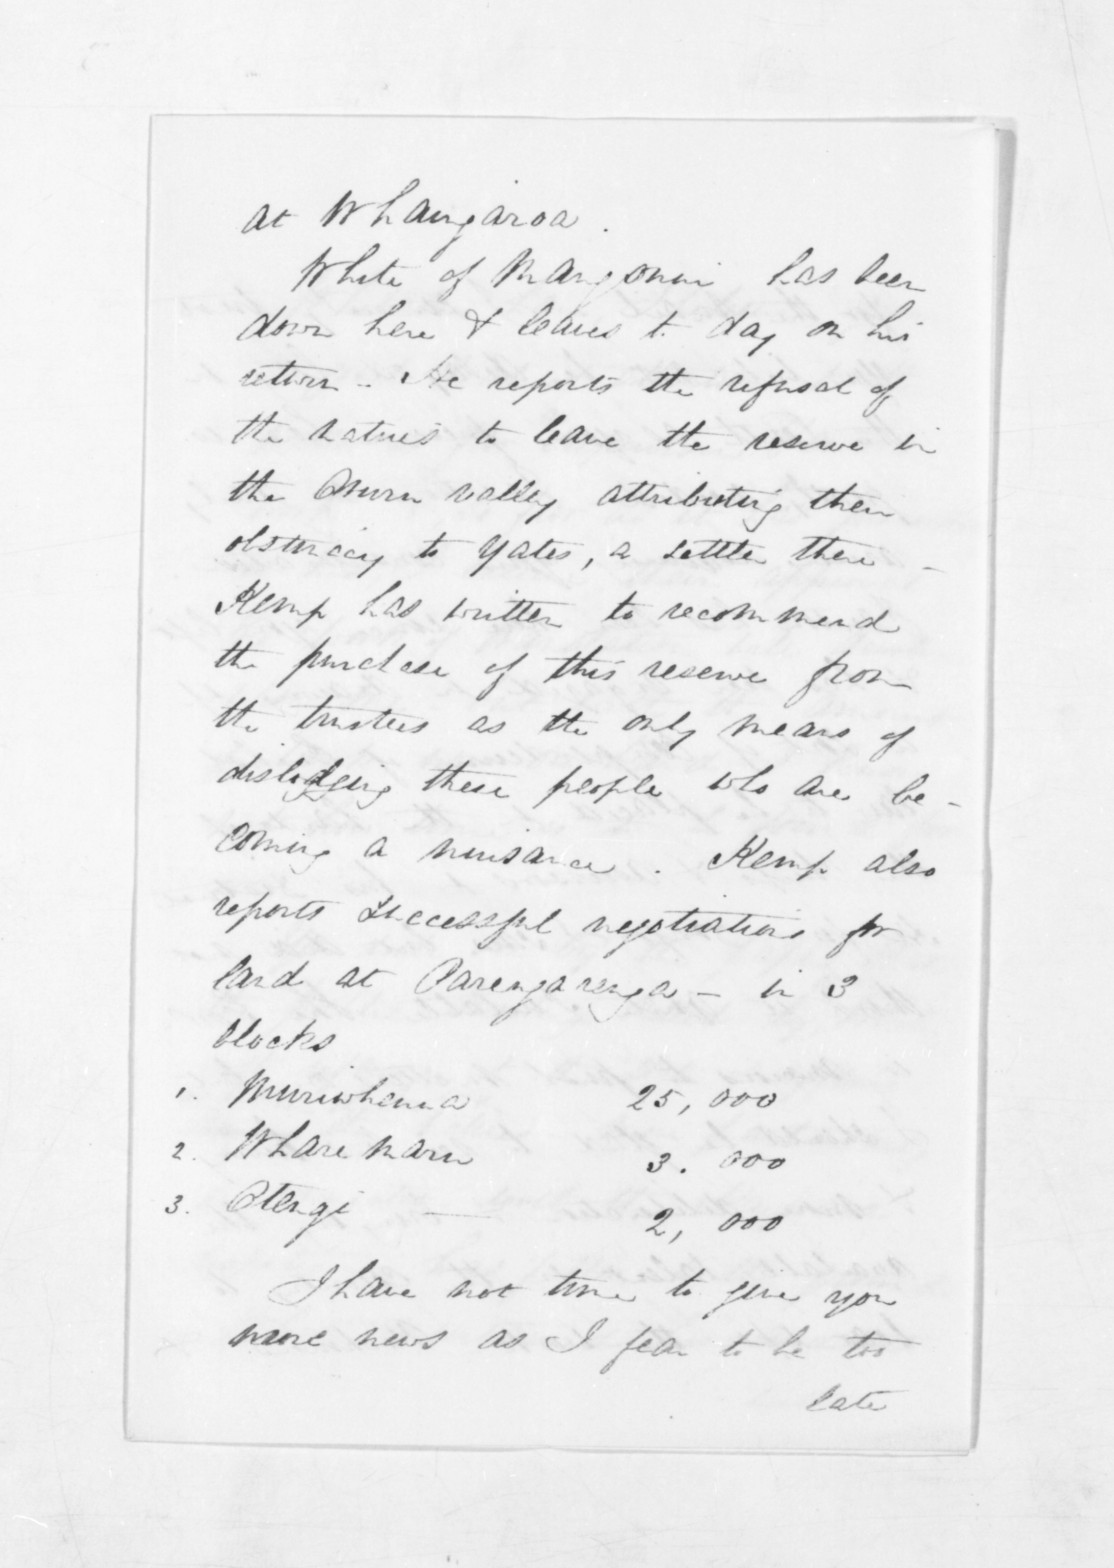 at Whangaroa.
White of Mangonui has been
down here & leaves to day on his
return - He reports the refusal of
the natives to leave the reserve in
the Oruru valley attributing their
obstinacy to Yates, a settler there -
Kemp has written to recommend
the purchase of this reserve from
the trustees as the only means of
dislodging these people who are be-
coming a nuisance. Kemp also
reports successful negotiations for
land at Parengarenga - in 3
blocks
1. Muriwhenua 25,000
2. Wharemaru 3.000
3. Otengi — 2,000
I have not time to give you
more news as I fear to be too
late